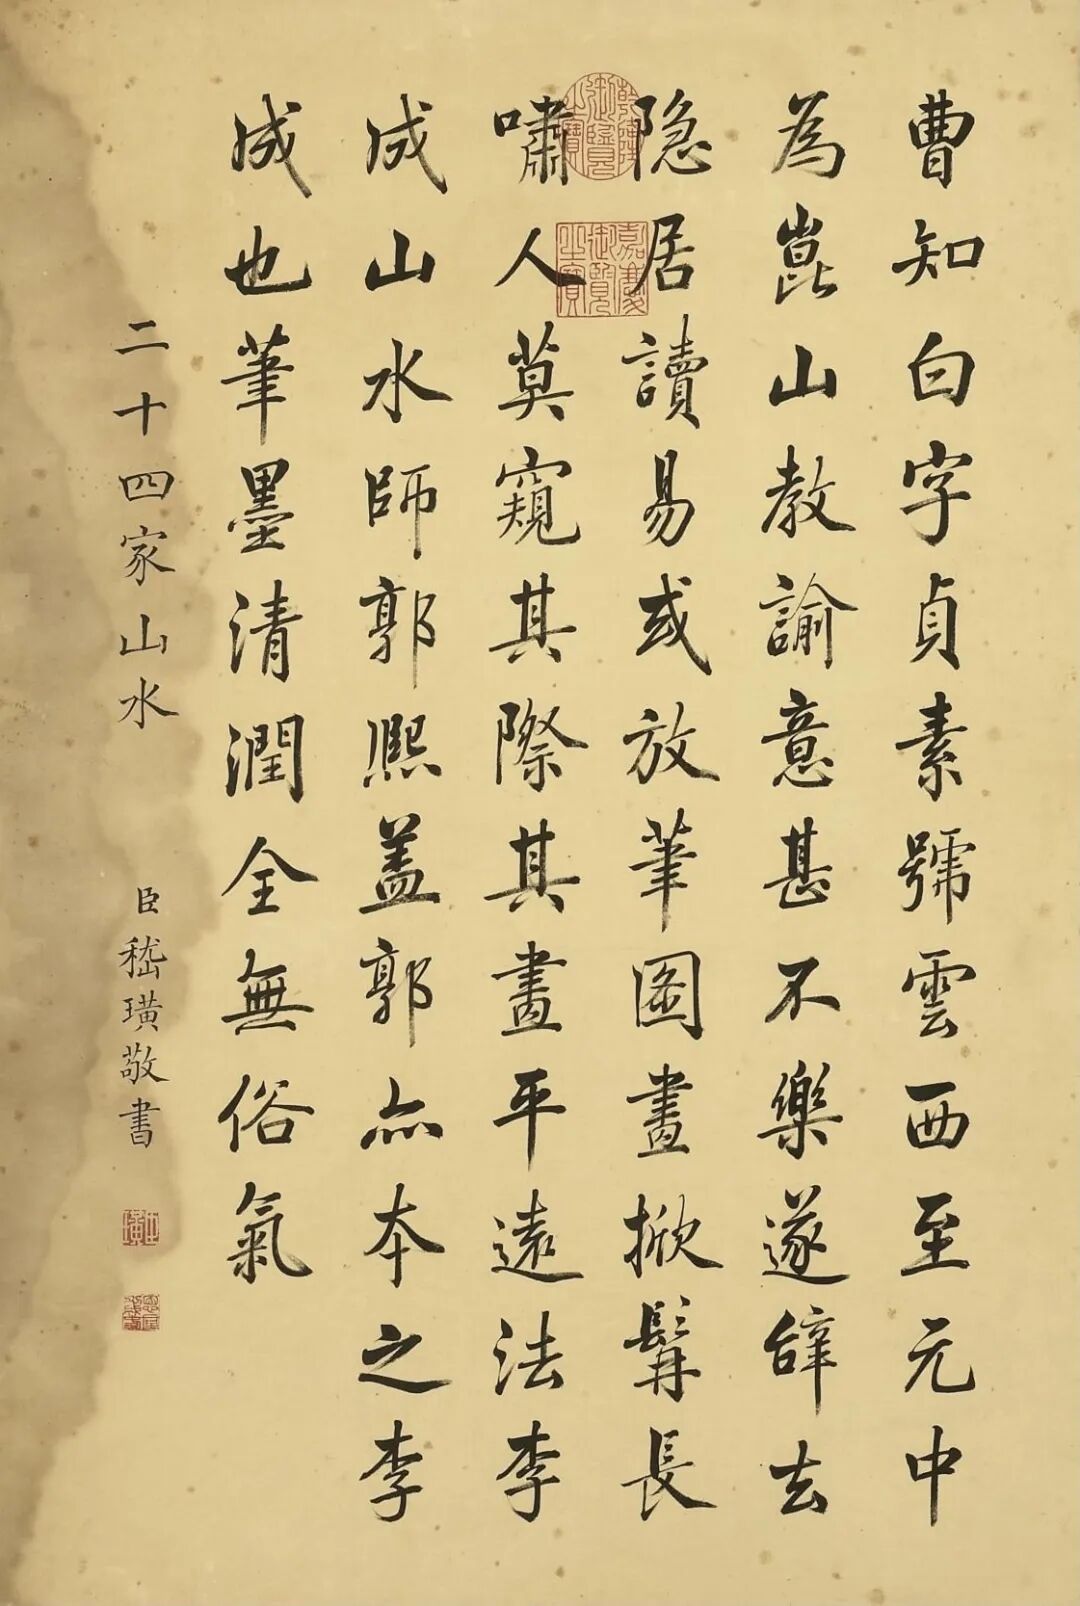 曹知白字貞素號雲西至元中
為崑山教諭意甚不樂遂辭去
隐居讀易或放筆圖畫掀髯長
嘯人莫窺其際其畫平遠法李
成山水師郭熙盖郭亦本之李
成也筆墨清潤全無俗氣
二十四家山水
臣嵇璜敬書
乾隆御覽之寶
嘉慶御覽之寶